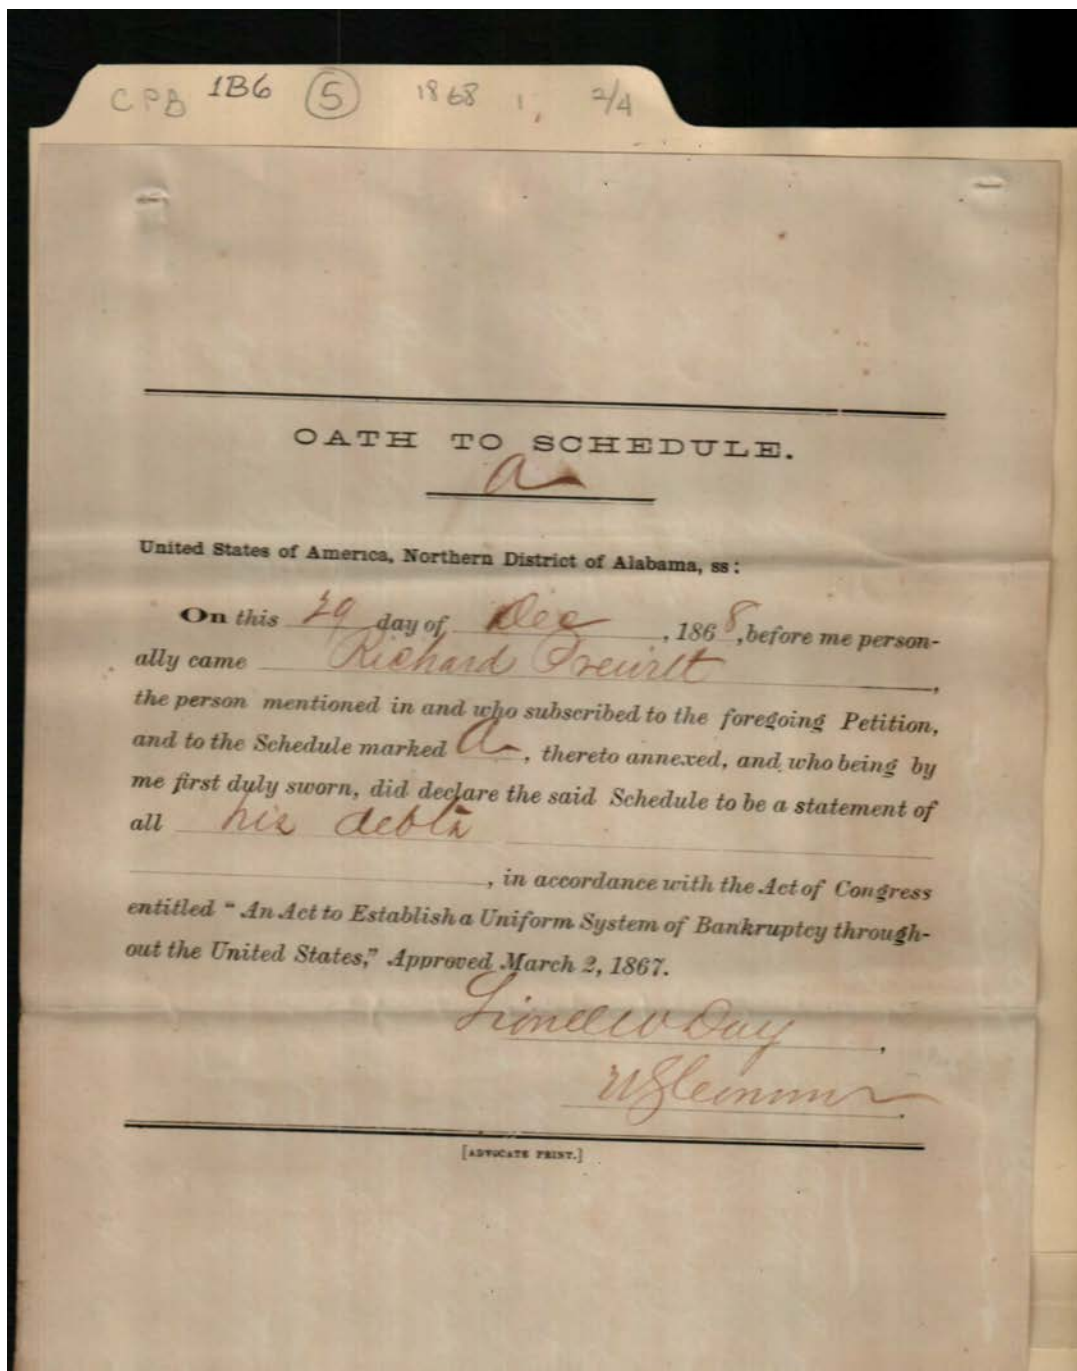 CPB 1B6 5 1868 1, 2/4
OATH TO SCHEDULE.
A
United States of America, Northern District of Alabama, ss:
On this 29 day of Dec, 1868, before me person-
ally came Richard Prewitt,
the person mentioned in and who subscribed to the foregoing Petition,
and to the Schedule marked A, thereto annexed, and who being by
me first duly sworn, did declare the said Schedule to be a statement of
all his debts
, in accordance with the Act of Congress
entitled "An Act to Establish a Uniform System of Bankruptcy through-
out the United States," Approved March 2, 1867.
Lionel W Day,
[ADVOCATE PRINT.]